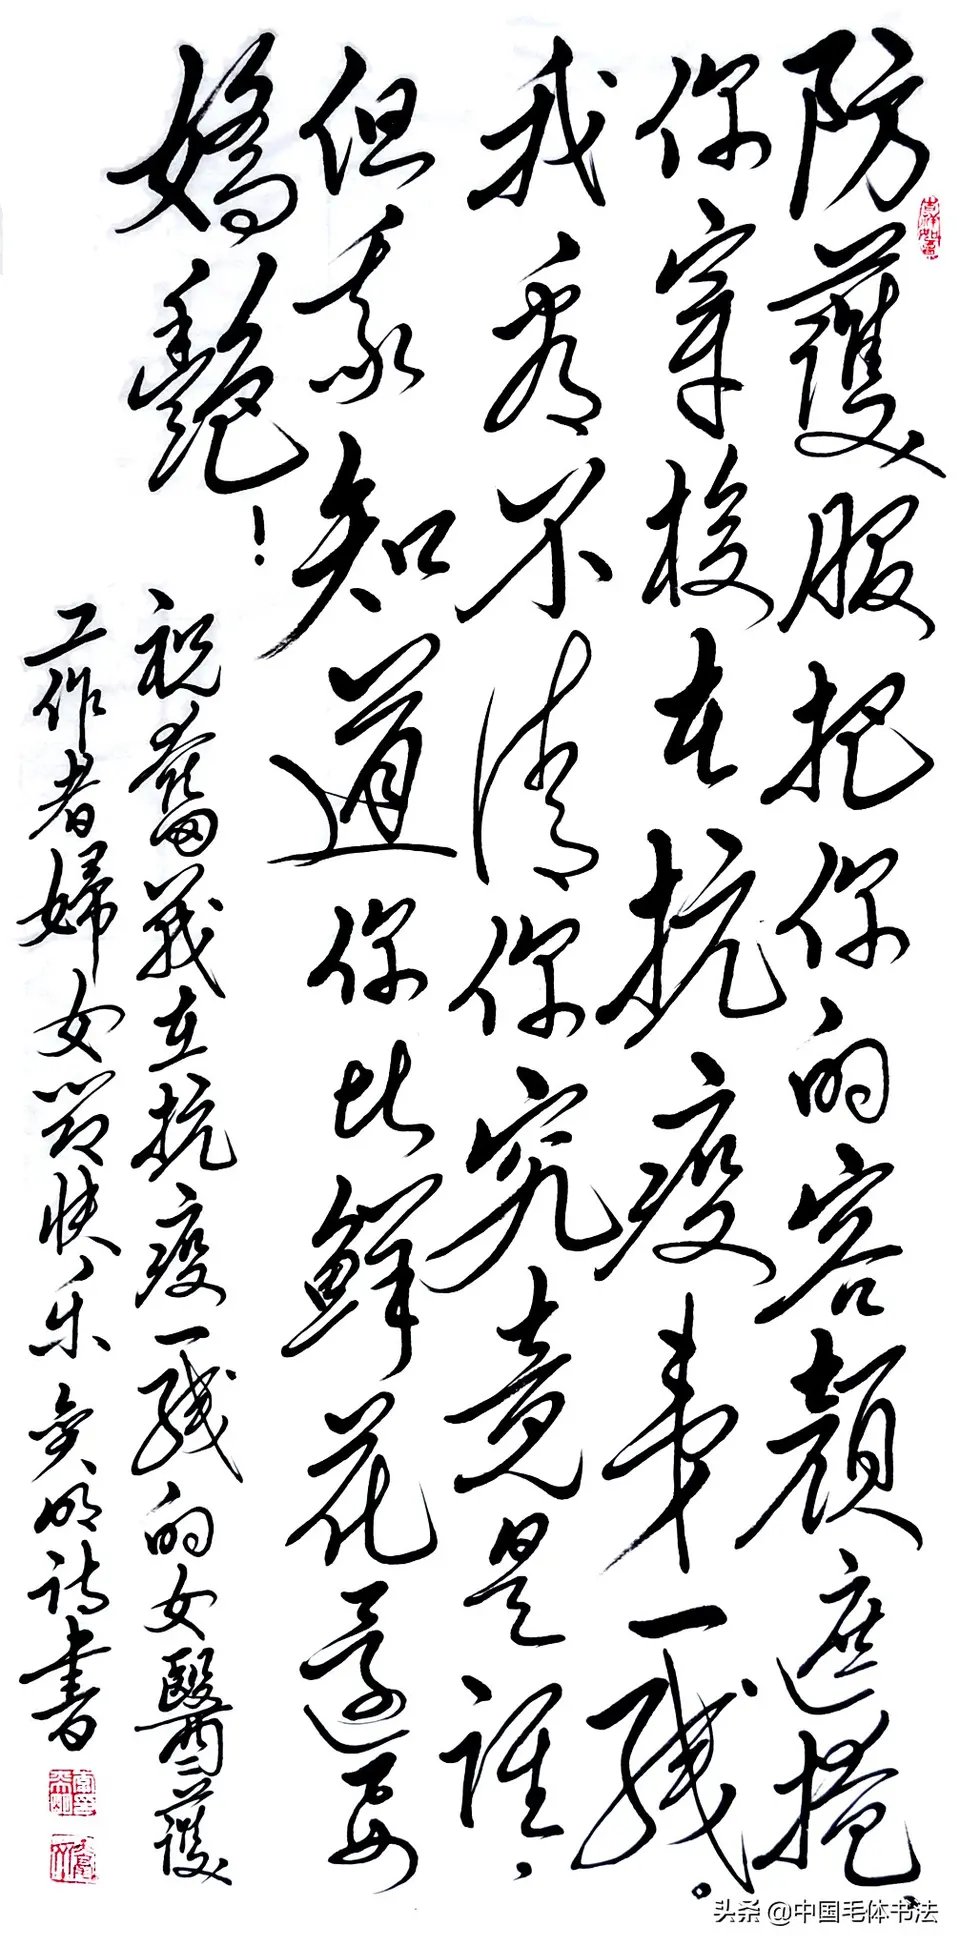 防護服把你的容颜遮掩，
你穿梭在抗疫第一线。
我看不清你究竟是谁，
但我知道你比鲜花還要
嬌艷！
祝奮战在抗疫一线的女醫護
工作者婦女節快乐 明诗書
头条 @中国毛体书法